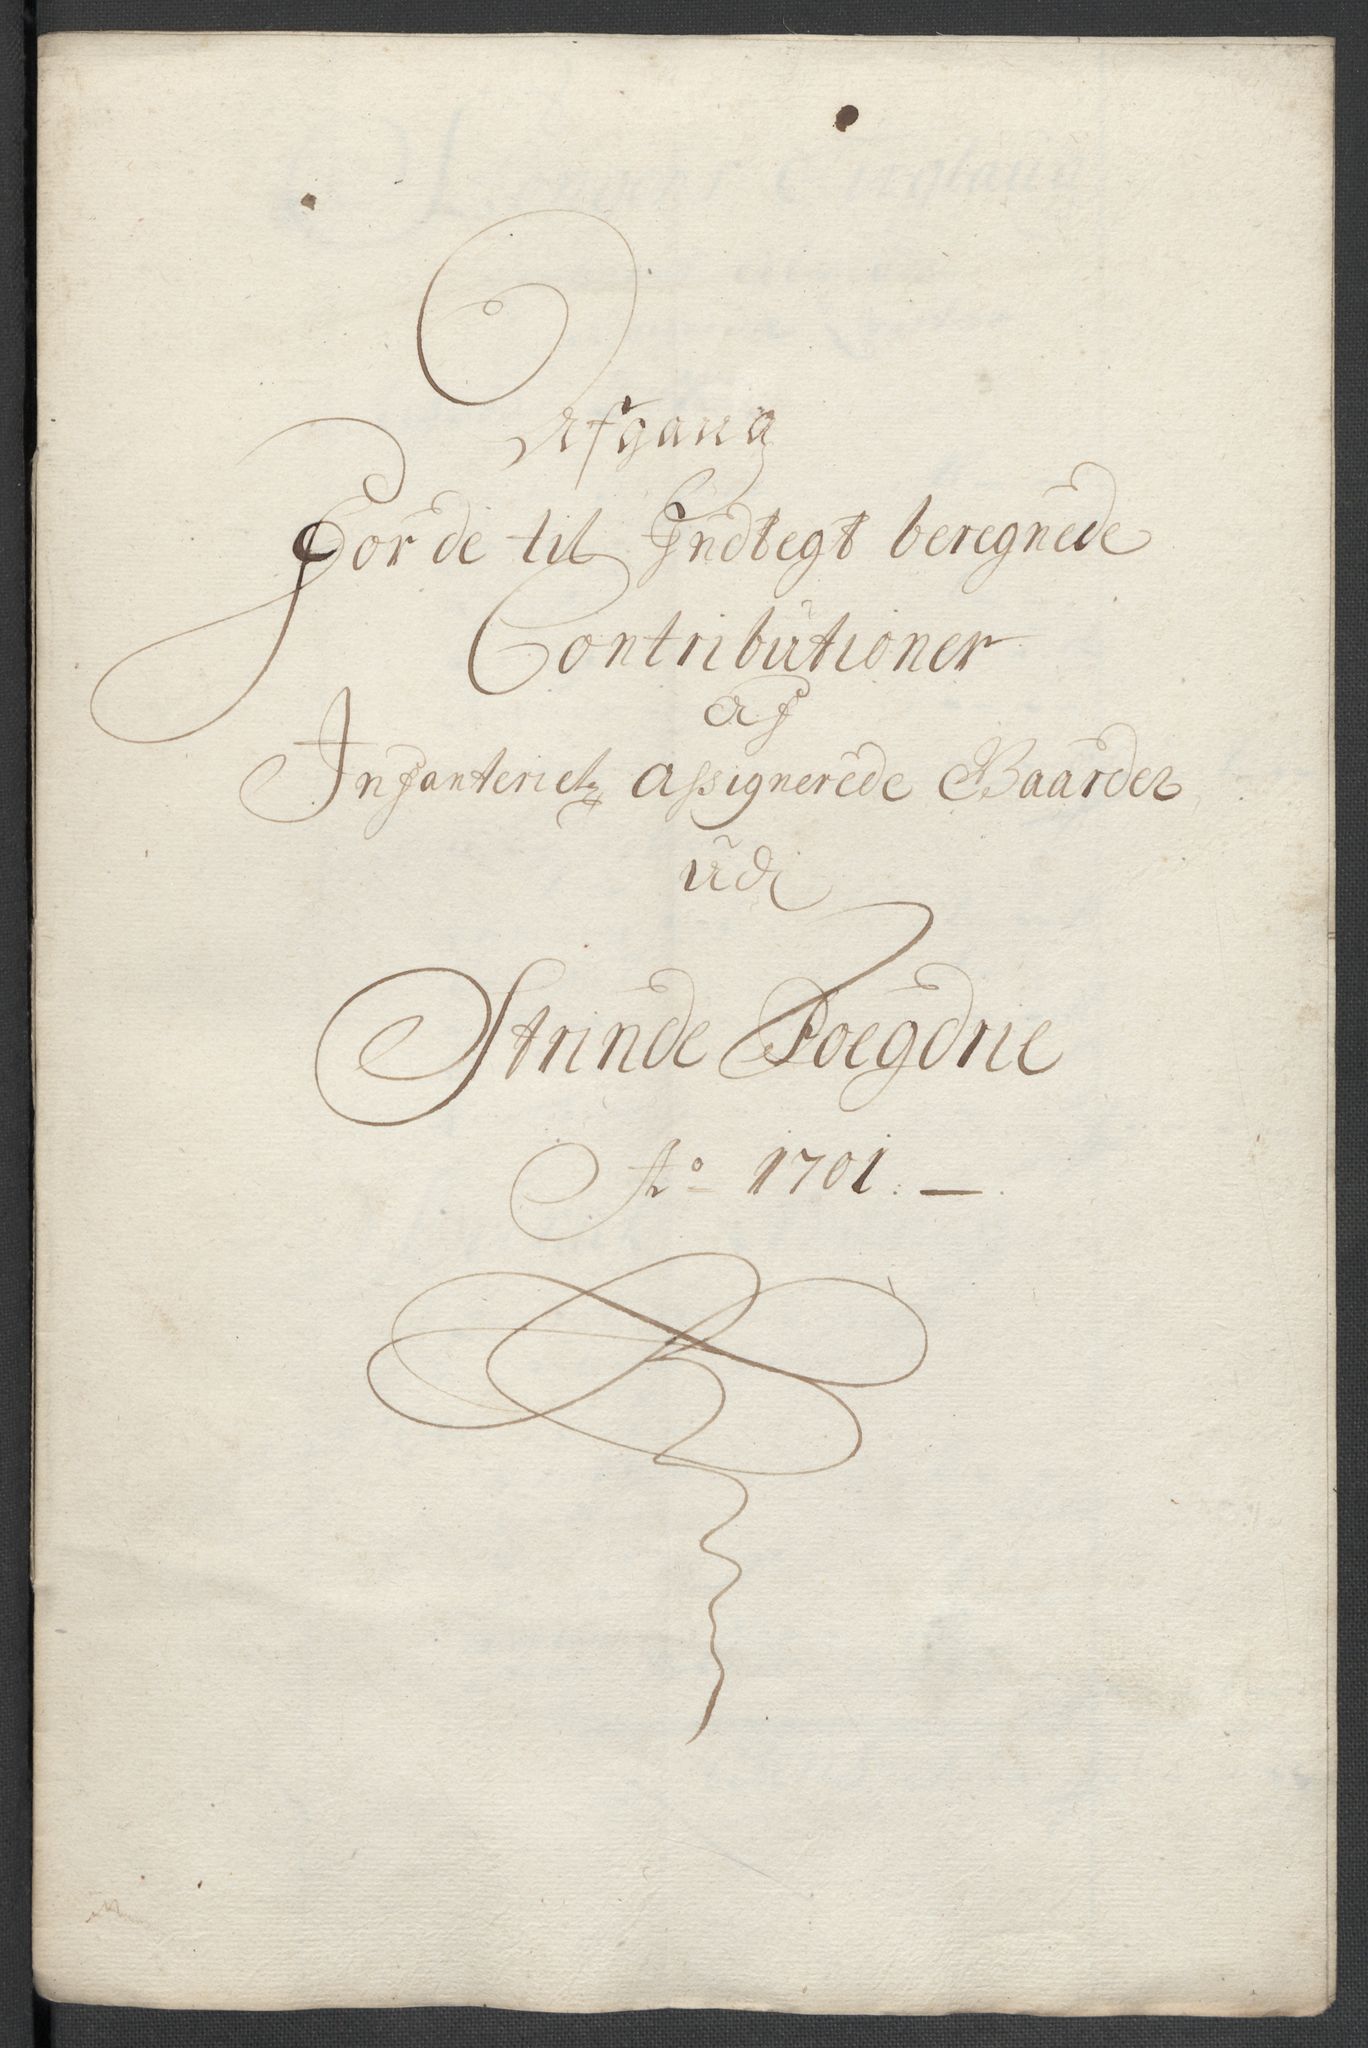 Afgang
For de til Indtegt beregnede
Contributioner
af
Infanteriets assignerede Gaarder
udi
Strinde Foegdrie
Ao 1701.